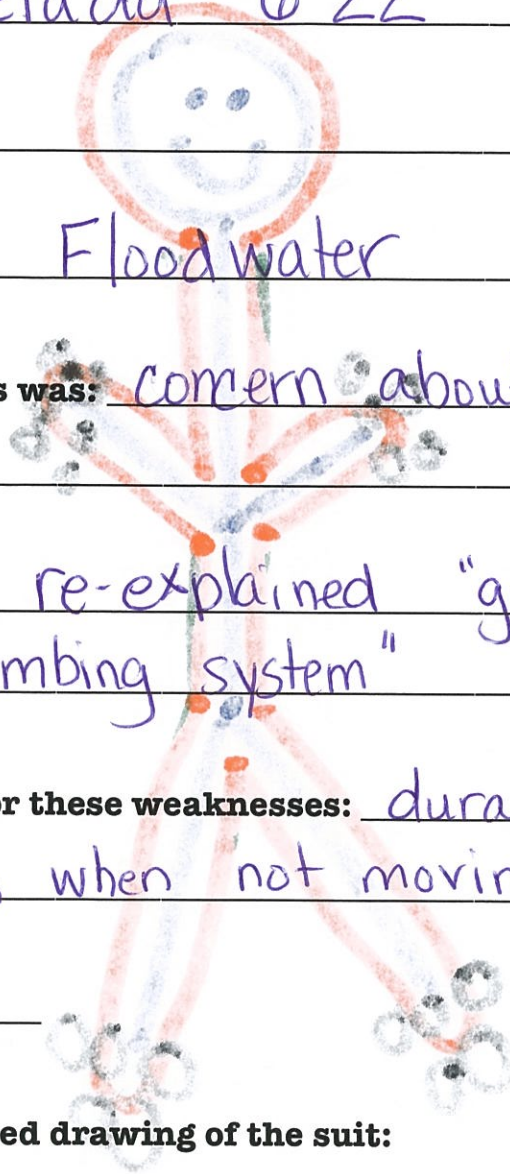 6 22
Floodwater
s was: concern abou
re-explained "g
mbing system"
r these weaknesses: dura
when not movin
ed drawing of the suit: